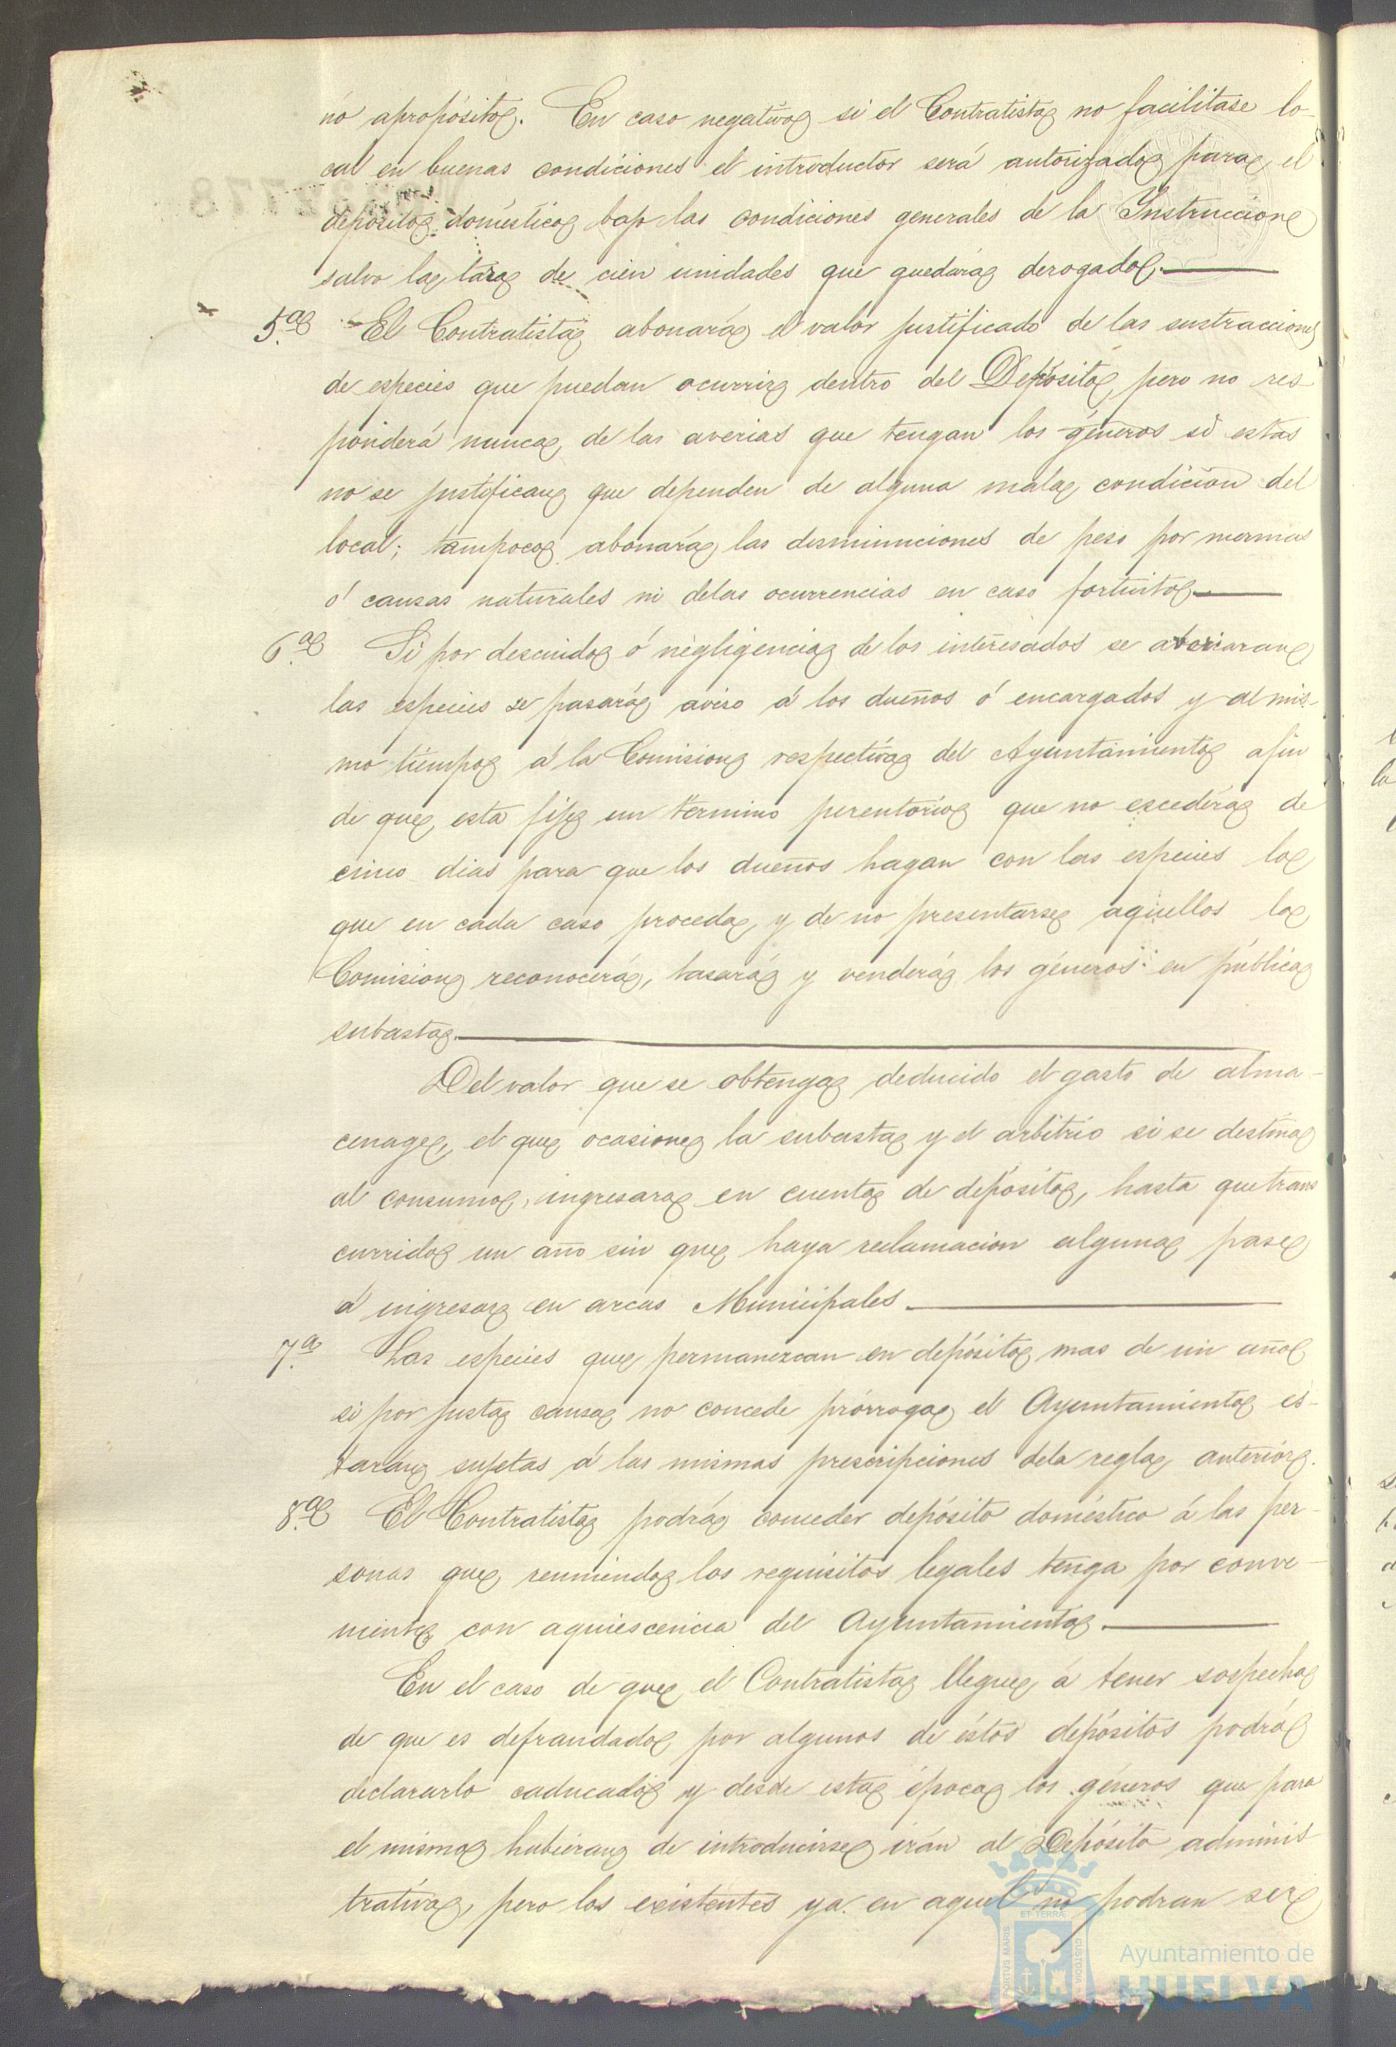 no apropósito. En caso negativo si el Contratista no facilitase lo-
cal en buenas condiciones el introductor será autorizado para el
depósito doméstico bajo las condiciones generales de la Instruccion
salvo la tasa de cien unidades que quedará derogado.
5.ª El Contratista abonará el valor justificado de las sustracciones
de especies que puedan ocurrir dentro del Depósito, pero no res-
ponderá nunca de las averias que tengan los géneros si estas
no se justifican que dependen de alguna mala condicion del
local; tampoco abonará las disminuciones de peso por mermas
ó causas naturales ni delas ocurrencias en caso fortuito.
6.ª Si por descuido ó negligencia de los interesados se averiaran
las especies se pasará aviso á los dueños ó encargados y al mis-
mo tiempo á la Comision respectiva del Ayuntamiento afin
de que esta fije un término perentorio que no escederá de
cinco dias para que los dueños hagan con las especies lo
que en cada caso proceda, y de no presentarse aquellos la
Comision reconocerá, tasará y venderá los géneros en pública
subasta.
Del valor que se obtenga deducido el gasto de alma-
cenage, el que ocasione la subasta y el arbitrio si se destina
al consumo, ingresara en cuenta de depósito, hasta que trans
currido un año sin que haya reclamacion alguna pase
á ingresar en arcas Municipales.
7.ª Las especies que permanezcan en depósito mas de un año
si por justa causa no concede prórroga el Ayuntamiento es-
tarán sujetas á las mismas prescripciones dela regla anterior.
8.ª El Contratista podrá conceder depósito doméstico á las per-
sonas que reuniendo los requisitos legales tenga por conve-
niente con aquiescencia del Ayuntamiento.
En el caso de que el Contratista llegue á tener sospecha
de que es defraudado por algunos de éstos depósitos podrá
declararlo caducado y desde esta época los géneros que para
el mismo hubieran de introducirse irán al Depósito adminis
trativo, pero los existentes ya en aquel no podran ser
Ayuntamiento de
HUELVA